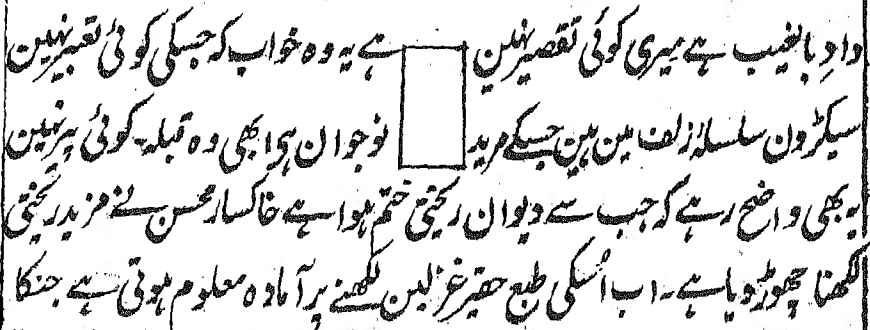 داد بالغیب ہے میری کوئی تقصیر نہین ہے یہ وہ خواب کہ جسکی کوئی تعبیر نہین
سیکڑون سلسلۂ زلف مین ہین جسکے مرید نوجوان ہی ابھی وہ قبلہ۔ کوئی پیر نہین
یہ بھی واضح رہے کہ جب سے دیوان ریختی ختم ہوا ہے خاکسار محسن نے مزید ریختی
لکھنا چھوڑ دیا ہے۔ اب اُسکی طبع حقیر غزلین لکھنے پر آمادہ معلوم ہوتی ہے جنکا